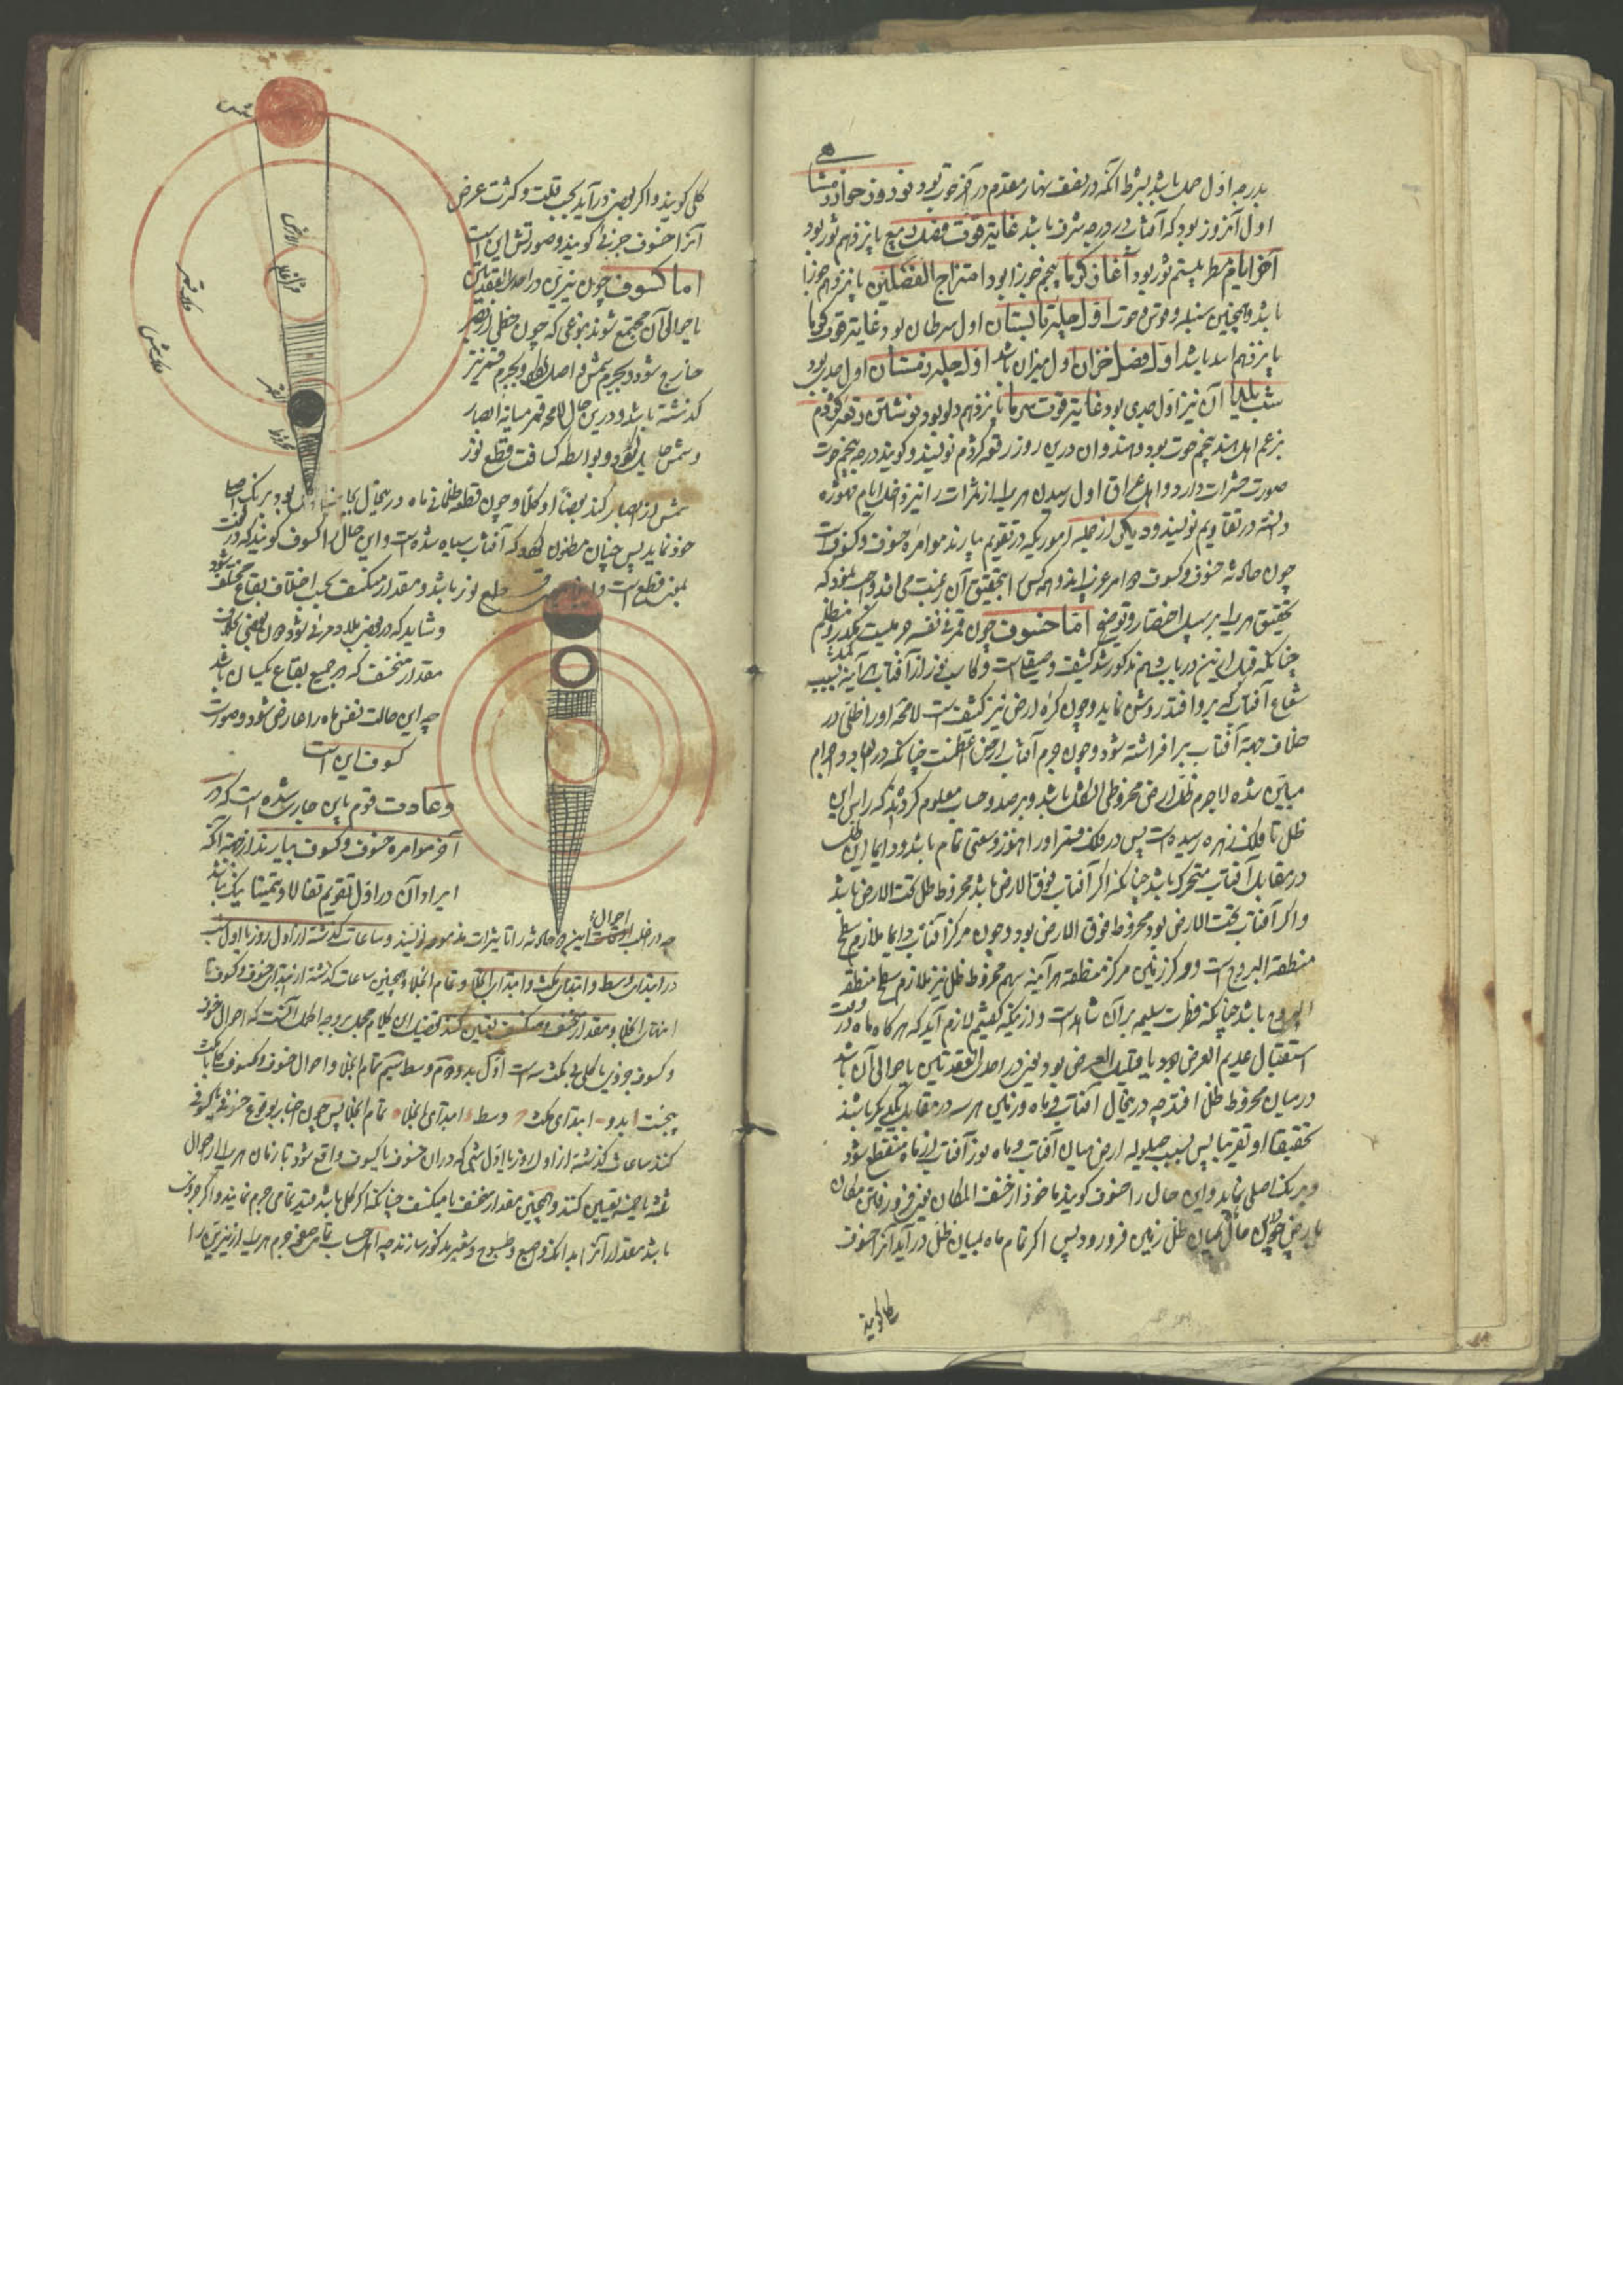 بدرجه اول حمل باشد بشرط آنکه در نصف نهار مقدم در آخر حوت بود
اول آنروز بود که آفتاب در درجه شرف باشد غایة قوت فصل ربیع پانزدهم ثور بود
آخر ایام مطر بیستم ثور بود آغاز گرما پنجم جوزا بود امتزاج الفصلین پانزدهم جوزا
باشد و همچنین سنبله و قوس و حوت اول چله تابستان اول سرطان بود غایة قوت گرما
پانزدهم اسد باشد اول فصل خزان اول میزان باشد اول چله زمستان اول جدی بود
شب یلدا آن نیز اول جدی بود غایة قوت سرما پانزدهم دلو بود نوشتن رقعه کژدم
بزعم اهل هند پنجم حوت بود و هندوان درین روز رقعه کژدم نویسند و گویند درجه پنجم حوت
صورت حشرات دارد و اهل عراق اول رسیدن هر یک از ثمرات را نیز داخل ایام مشهوره
دانسته در تقاویم نویسند و دیگر از جمله اموریکه در تقویم بیارند موامره خسوف و کسوفست
چون حادثه خسوف و کسوف دو امر غریب اند و همه کس را بتحقیق آن رغبت می افتد واجب نمود که
تحقیق هر یک بر سبیل اختصار رود اما خسوف چون قمر فی نفسه جرمیست کدر و مظلم
چنانکه قبل ازین در باب دهم مذکور شد کثیف و صیقل است و کاسب نور از آفتاب هر آینه بسبب
شعاع آفتاب که برو افتد روشن نماید و چون کره ارض نیز کثیف است لامحه او را ظلی در
خلاف جهة آفتاب برافراشته شود و چون جرم آفتاب از ارض اعظمست چنانکه در ابعاد و اجرام
مبین شده لاجرم ظل ارض مخروطی الشکل باشد و برصد و حساب معلوم کرده اند که راس این
ظل تا فلک زهره رسیده است پس در فلک قمر او را هنوز وسعتی تمام باشد و دایما این ظل
در مقابل آفتاب متحرک باشد چنانکه اگر آفتاب فوق الارض باشد مخروط ظل تحت الارض باشد
و اگر آفتاب تحت الارض بود مخروط فوق الارض بود و چون مرکز آفتاب دایما ملازم سطح
منطقة البروج است و مرکز زمین مرکز منطقه هر آینه سهم مخروط ظل نیز ملازم سطح منطقة
البروج باشد چنانکه فطرت سلیمه بر آن شاهد است و از آنکه گفتیم لازم آید که هر گاه ماه در وقت
استقبال عدیم العرض بود یا قلیل العرض بود یعنی در احدی العقدتین یا حوالی آن باشد
در میان مخروط ظل افتد چه درینحال آفتاب و ماه و زمین هر سه در مقابل یکدیگر باشند
تحقیقا او تقریبا پس بسبب حیلوله ارض میان آفتاب و ماه نور آفتاب از ماه منقطع شود
و برنگ اصلی نماید و این حال را خسوف گویند ماخوذ از خسف المکان یعنی فرو رفتن مکان
بارض چون ماه بمیان ظل زمین فرو رود پس اگر تمام ماه بمیان ظل درآید آنرا خسوف
کلی گویند
کلی گویند و اگر بعضی درآید بحسب قلت و کثرت عرض
آنرا خسوف جزئی گویند و صورتش این است
اما کسوف چون نیرین در احدی العقدتین
یا حوالی آن مجتمع شوند بنوعی که چون خطی از بصر
خارج شود و بجرم شمس واصل گردد بجرم قمر نیز
گذشته باشد و درین حال لامحه قمر میانه ابصار
و شمس حایل گردد و بواسطه کثافت قطع نور
شمس از ابصار کند بعضا او کلا و چون قطعه ظلمانی ماه درینحال
خود نماید پس چنان مظنون گردد که آفتاب سیاه شده است و این حال را کسوف گویند که در لغت
بمعنی قطع است قطع نور باشد و مقدار منکسف بحسب اختلاف بقاع مختلف شود
و شاید که در بعضی بلاد مرئی شود در بعضی بخلاف
مقدار منخسف که در جمیع بقاع یکسان باشد
چه این حالت نفس ماه را عارض شود و صورت
کسوف این است
و عادت قوم باین جاری شده است که در
آخر موامره خسوف و کسوف بیارند از جهة آنکه
ایراد آن در اول تقویم تفالا و تیمنا نیک نباشد
چه در اغلب احوال این دو حادثه را تاثیرات مذمومه نویسند و ساعات گذشته از اول روز یا اول شب
در ابتدا و وسط و ابتدای مکث و ابتدای انجلا و تمام انجلا و همچنین ساعات گذشته از ابتدای خسوف و کسوف تا
انتهای انجلا و مقدار منخسف و منکسف تعیین کنند تفصیل این کلام مجمل بر وجه اکمل آنست که احوال خسوف
و کسوف جزوی یا کلی بی مکث سه است اول بدو دوم وسط سیم تمام انجلا و احوال خسوف و کسوف کلی با مکث
پنجست ا بدو ب ابتدای مکث ج وسط د ابتدای انجلا ه تمام انجلا پس چون اخبار بوقوع خسوف یا کسوف
کنند ساعات گذشته از اول روز یا اول شبی که در آن خسوف یا کسوف واقع شود تا زمان هر یک از احوال
ثلثه یا خمسه تعیین کنند و همچنین مقدار منخسف یا منکسف چنانکه اگر کلی باشد قید تمامی جرم نمایند و اگر جزوی
باشد مقدار آنرا باصابع مذکور سازند چه اهل حساب تمامی صفحه جرم هر یک از نیرین را
شمس
الارض
مرکز عالم
القمر
مخروط
فلک قمر
فلک شمس